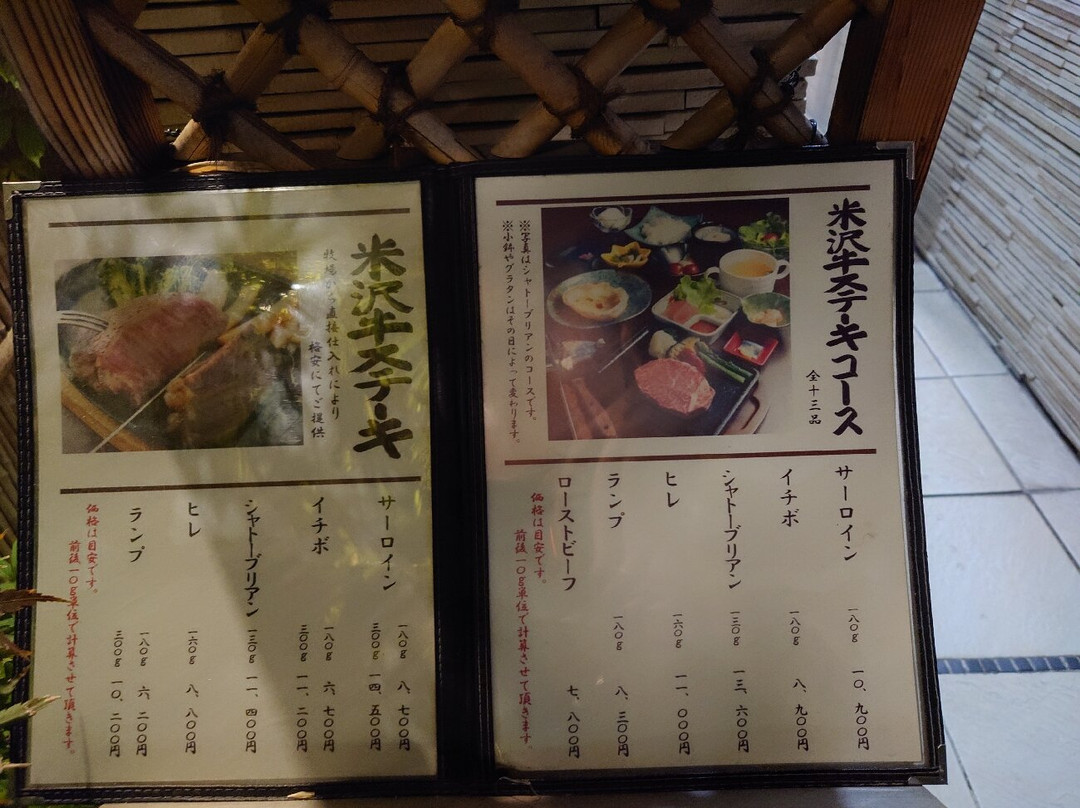 米沢牛ステーキコース
全十三品
※写真はシャトーブリアンのコースです。
※小鉢やグラタンはその日によって変わります。
サーロイン 一八〇g 一〇、九〇〇円
イチボ 一八〇g 八、九〇〇円
シャトーブリアン 一三〇g 一三、六〇〇円
ヒレ 一六〇g 一一、〇〇〇円
ランプ 一八〇g 八、三〇〇円
ローストビーフ 七、八〇〇円
価格は目安です。
前後一〇g単位で計算させて頂きます。
米沢牛ステーキ
牧場から直接仕入れにより
格安にてご提供
サーロイン 一八〇g 八、七〇〇円
三〇〇g 一四、五〇〇円
イチボ 一八〇g 六、七〇〇円
三〇〇g 一一、二〇〇円
シャトーブリアン 一三〇g 一一、四〇〇円
ヒレ 一六〇g 八、八〇〇円
ランプ 一八〇g 六、二〇〇円
三〇〇g 一〇、二〇〇円
価格は目安です。
前後一〇g単位で計算させて頂きます。